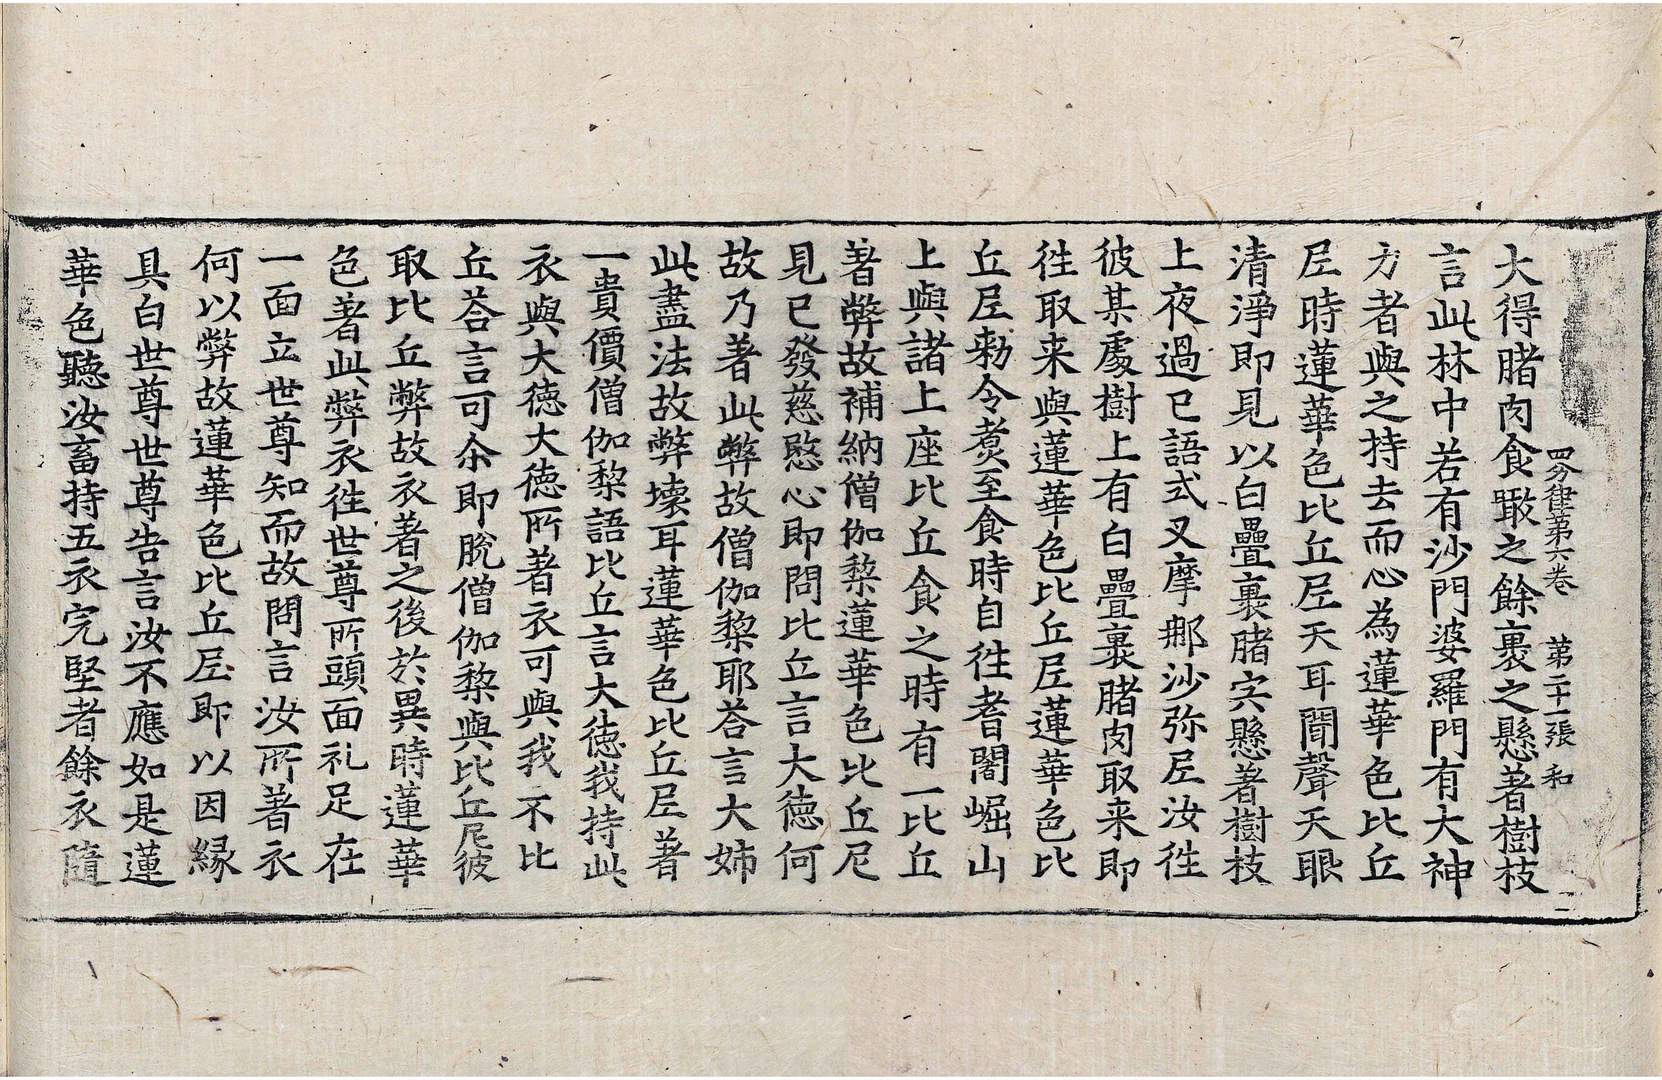 四分律第六卷 第二十一張 和
大得䐗肉食噉之餘褁之懸著樹枝
言此林中若有沙門婆羅門有大神
力者與之持去而心為蓮華色比丘
尼時蓮華色比丘尼天耳聞聲天眼
清淨即見以白疊褁䐗宍懸著樹枝
上夜過已語式叉摩那沙弥尼汝往
彼某處樹上有白疊褁䐗肉取来即
往取来與蓮華色比丘尼蓮華色比
丘尼勑令煑至食時自往耆闍崛山
上與諸上座比丘食之時有一比丘
著弊故補納僧伽梨蓮華色比丘尼
見已發慈愍心即問比丘言大德何
故乃著此弊故僧伽梨耶荅言大姊
此盡法故弊壞耳蓮華色比丘尼著
一貴價僧伽梨語比丘言大德我持此
衣與大德大德所著衣可與我不比
丘荅言可尒即脫僧伽梨與比丘尼彼
取比丘弊故衣著之後於異時蓮華
色著此弊衣往世尊所頭面礼足在
一面立世尊知而故問言汝所著衣
何以弊故蓮華色比丘尼即以因縁
具白世尊世尊告言汝不應如是蓮
華色聽汝畜持五衣完堅者餘衣隨